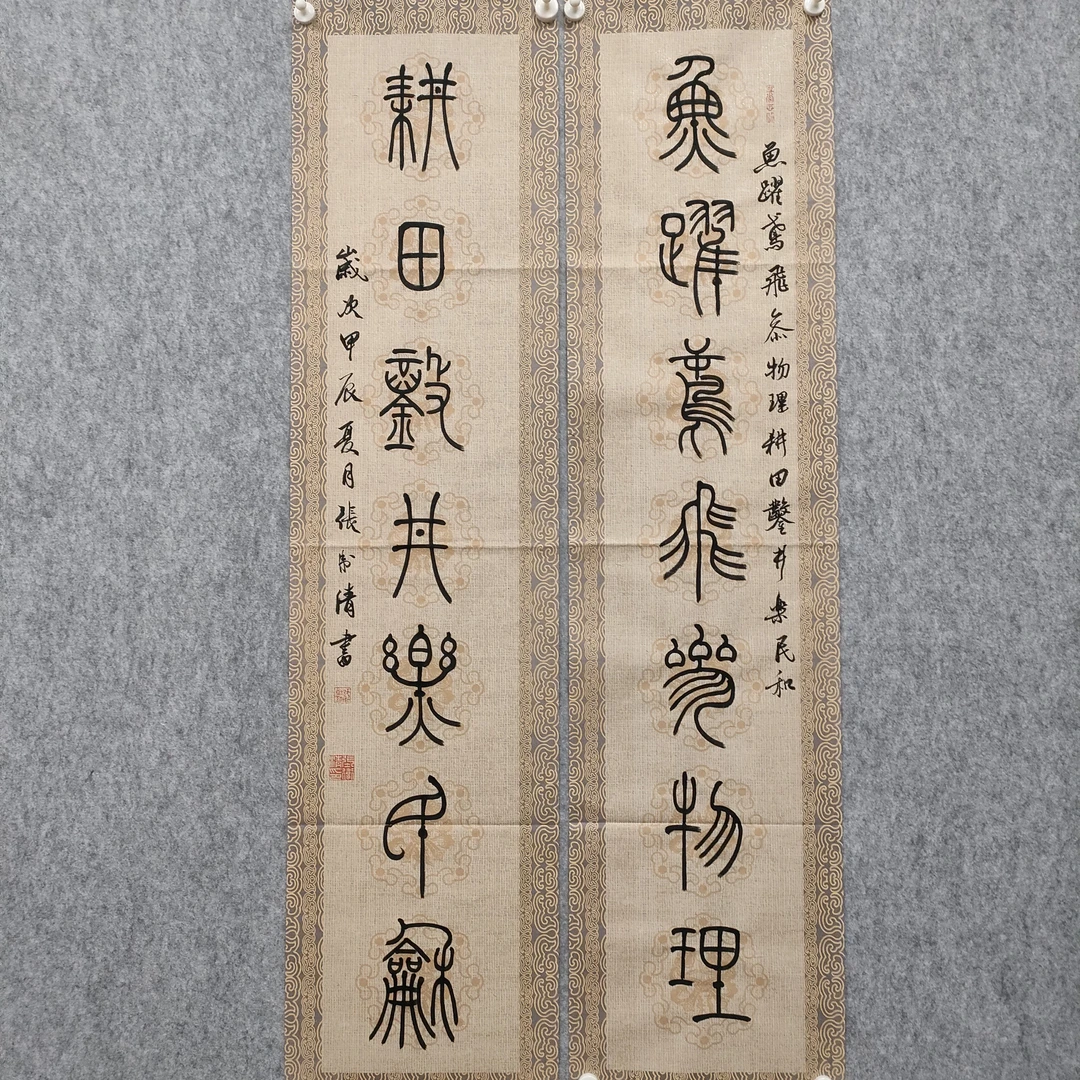 魚躍鳶飛參物理
魚躍鳶飛叅物理耕田鑿井樂民和
耕田鑿井樂民龢
歲次甲辰夏月張
清書